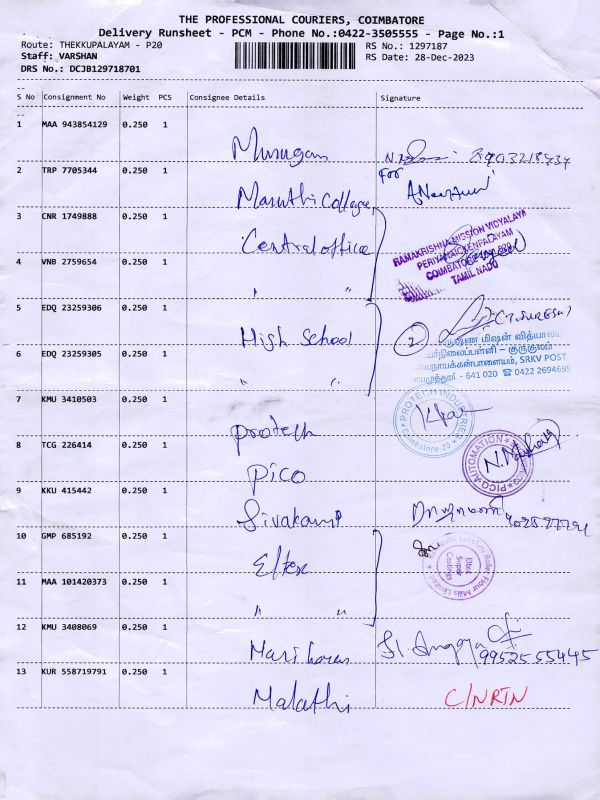 THE PROFESSIONAL COURIERS, COIMBATORE
Delivery Runsheet - PCM - Phone No.:0422-3505555 - Page No.:1
Route: THEKKUPALAYAM - P20 RS No.: 1297187
Staff: VARSHAN RS Date: 28-Dec-2023
DRS No.: DCJB129718701
S No Consignment No Weight PCS Consignee Details Signature
1 MAA 943854129 0.250 1 Murugan
2 TRP 7705344 0.250 1 Maruthi College for
3 CNR 1749888 0.250 1 Central office
RAMAKRISHNA MISSION VIDYALAYA
PERIYANAICKENPALAYAM
COIMBATORE
TAMIL NADU
4 VNB 2759654 0.250 1 " "
5 EDQ 23259306 0.250 1 High School (T. SURESH)
2
6 EDQ 23259305 0.250 1 " "
குருகுலம்
SRKV POST
641 020 ☎ 0422 2694695
7 KMU 3410503 0.250 1 protech
PROTECH INDUSTRIES
Coimbatore-20
8 TCG 226414 0.250 1 PICO
PICO AUTOMATION
9 KKU 415442 0.250 1 Sivakami
10 GMP 685192 0.250 1 Eltex
Roller Flour Mills Limited
Eltex
Super
Castings
11 MAA 101420373 0.250 1 " "
12 KMU 3408069 0.250 1 Hariharan
9952555445
13 KUR 558719791 0.250 1 Malathi C/NRTN